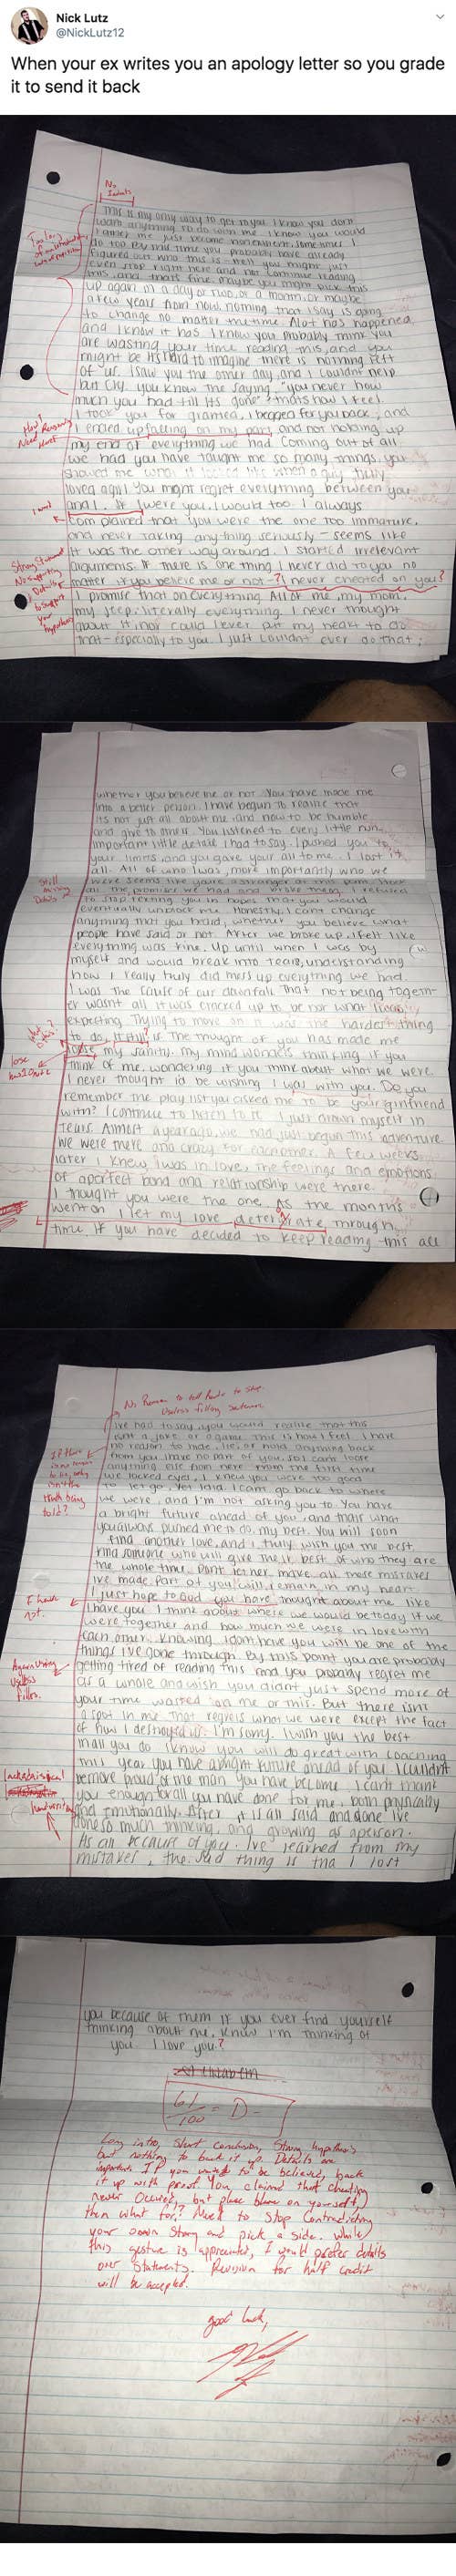 Nick Lutz
@NickLutz12
When your ex writes you an apology letter so you grade
it to send it back
No
Indents
This is my only way to get to you. I know you don't
want anything to do with me. I know you would
rather me just become nonexistent, sometimes I
do too. By this time you probably have already
figured out who this is - hell you might just
even stop right here and not continue reading
this, and that's fine. maybe you might pick this
up again in a day or two, or a month, or maybe
a few years from now. nothing that I say is going
to change no matter the time. Alot has happened
and I know it has. I know you probably think you
are wasting your time reading this, and you
might be. It's hard to imagine there is nothing left
of us. I saw you the other day, and I couldn't help
but cry. you know the saying, "you never how
much you had till its gone" thats how I feel.
I took you for granted, I begged for you back, and
I ended up falling on my part, and not holding up
my end of everything we had. Coming out of all
we had you have taught me so many things. you
showed me what it looked like when a guy truly
loved a girl. You might regret everything between you
and I. If I were you, I would too. I always
complained that you were the one too immature,
and never taking anything seriously - seems like
it was the other way around. I started irrelevant
arguments. If there is one thing I never did to you no
matter if you believe me or not - I never cheated on you?
I promise that on everything. All of me, my mom,
my jeep, literally everything. I never thought
about it, nor could I ever put my heart to do
that - especially to you. I just couldn't ever do that,
Strong Statement
No supporting
Details
to support
your
hypothesis
whether you believe me or not. You have made me
into a better person. I have begun to realize that
its not just all about me, and how to be humble,
and give to others. You listened to every little
important little detail I had to say. I pushed you to
your limits, and you gave your all to me. I lost it
all. All of who I was, more importantly who we
were. seems like youre a stranger at this point.
all the promises we had and broke them. I refused
to stop texting you in hopes that you would
eventually unblock me. Honestly, I cant change
anything that you heard, whether you believe what
people have said or not. After we broke up, I felt like
everything was fine. Up until when I was by
myself and would break into tears, understanding
how I really truly did mess up everything we had.
I was the cause of our downfall. That not being togeth-
er wasnt all it was cracked up to be nor what I was
expecting. Trying to move on it was the hardest thing
to do, is the thought of you has made me
loose my sanity. my mind wonders thinking if you
think of me, wondering if you think about what we were.
I never thought id be wishing I was with you. Do you
remember the playlist you asked me to be your girlfriend
with? I continue to listen to it. I just drown myself in
tears. Almost a year ago, we had just begun this adventure.
We were there and crazy for each other. A few weeks
later I knew I was in love, the feelings and emotions
of a perfect bond and relationship were there.
I thought you were the one. As the months
went on I let my love deteriate through
time. If you have decided to keep reading this all
Still
missing
Details
lose
No Reason to tell Reader to stop.
Useless filling sentence.
Ive had to say, you would realize that this
isnt a joke, or a game. This is how I feel. I have
no reason to hide, lie, or hold anything back
from you. I have no part of you, so I cant loose
anything else from here. From the first time
we locked eyes, I knew you were too good
to let go. Yet said, I cant go back to where
we were, and I'm not asking you to. You have
a bright future ahead of you, and thats what
you always pushed me to do, my best. You will soon
find another love, and I truly wish you the best.
Find someone who will give their best of who they are
the whole time. Dont let her make all these mistakes
Ive made. Part of you will remain in my heart.
I just hope to God you have thought about me like
I have you. I think about where we would be today if we
were together and how much we were in love with
each other. Knowing I dont have you will be one of the
things Ive gone through. By this point you are probably
getting tired of reading this and you probably regret me
as a whole and wish you didnt just spend more of
your time wasted on me or this. But there isnt
a spot in me that regrets who we were except the fact
of how I destroyed us. I'm sorry. I wish you the best
in all you do. I know you will do great with coaching
this year. You have a bright future ahead of you. I couldn't
be more proud of the man you have become. I cant thank
you enough for all you have done for me, both physically
and emotionally. After it is all said and done Ive
done so much thinking, and growing as a person.
As all because of you. Ive learned from my
mistakes, the sad thing is tha I lost
If there
is no reason
to lie, why
isn't the
truth being
told?
I have
not.
Again Using
Useless
filler.
handwriting
you because of them. If you ever find yourself
thinking about me, know I'm thinking of
you. I love you?
61/100 = D-
Long intro, short conclusion, Strong hypothesis
but nothing to back it up. Details are
important. If you want to be believed, back
it up with proof. You claimed that cheating
never occurred, but place blame on yourself,
then what for? Need to stop contradicting
your own story and pick a side. While
this gesture is appreciated, I would prefer details
over statements. Revision for half credit
will be accepted.
good luck,